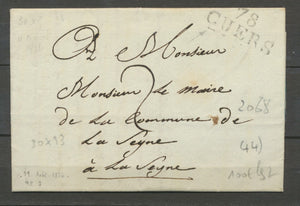 78
CUERS
A Monsieur
Monsieur le maire
de la Commune de
La Seyne
à La Seyne
2068
30x13
44)